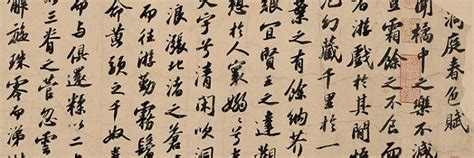 洞庭春色賦
聞橘中之樂不減
豈霜餘之不食而
者游戲於其間悟
泡幻藏千里於一
棗葉之有餘納芥
宜賢王之達觀
想於人寰嫋嫋兮
天宇兮清閑吹洞
浪漲北渚之蒼
而往游勤霧鬢
命黃頭之千奴
而與俱還糅以二
三脊之菅忽雲
解旋珠零而涕潸